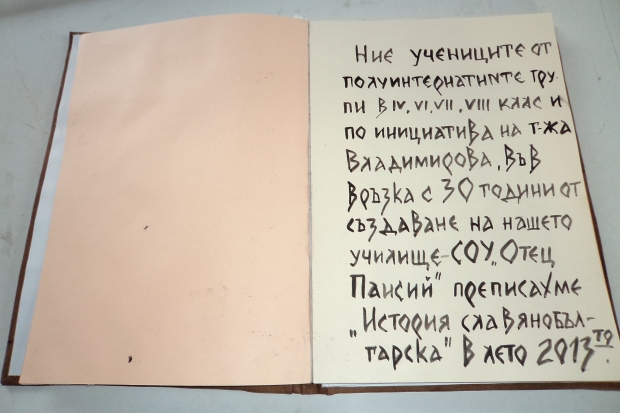 Ние учениците от
полуинтернатните гру-
пи в IV, VI, VII, VIII клас и
по инициатива на г-жа
Владимирова, във
връзка с 30 години от
създаване на нашето
училище-СОУ„Отец
Паисий" преписахме
"История славянобъл-
гарска" в лето 2013то.